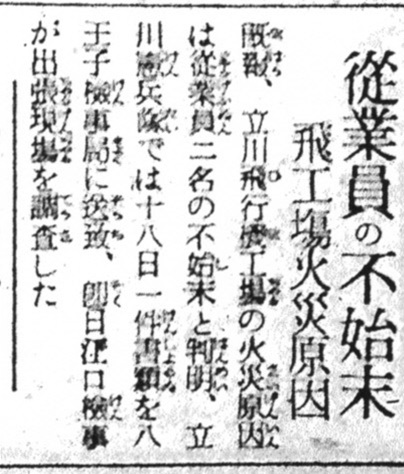 從業員の不始末
飛工場火災原因
既報、立川飛行機工場の火災原因
は從業員二名の不始末と判明、立
川憲兵隊では十八日一件書類を八
王子檢事局に送致、即日江口檢事
が出張現場を調査した